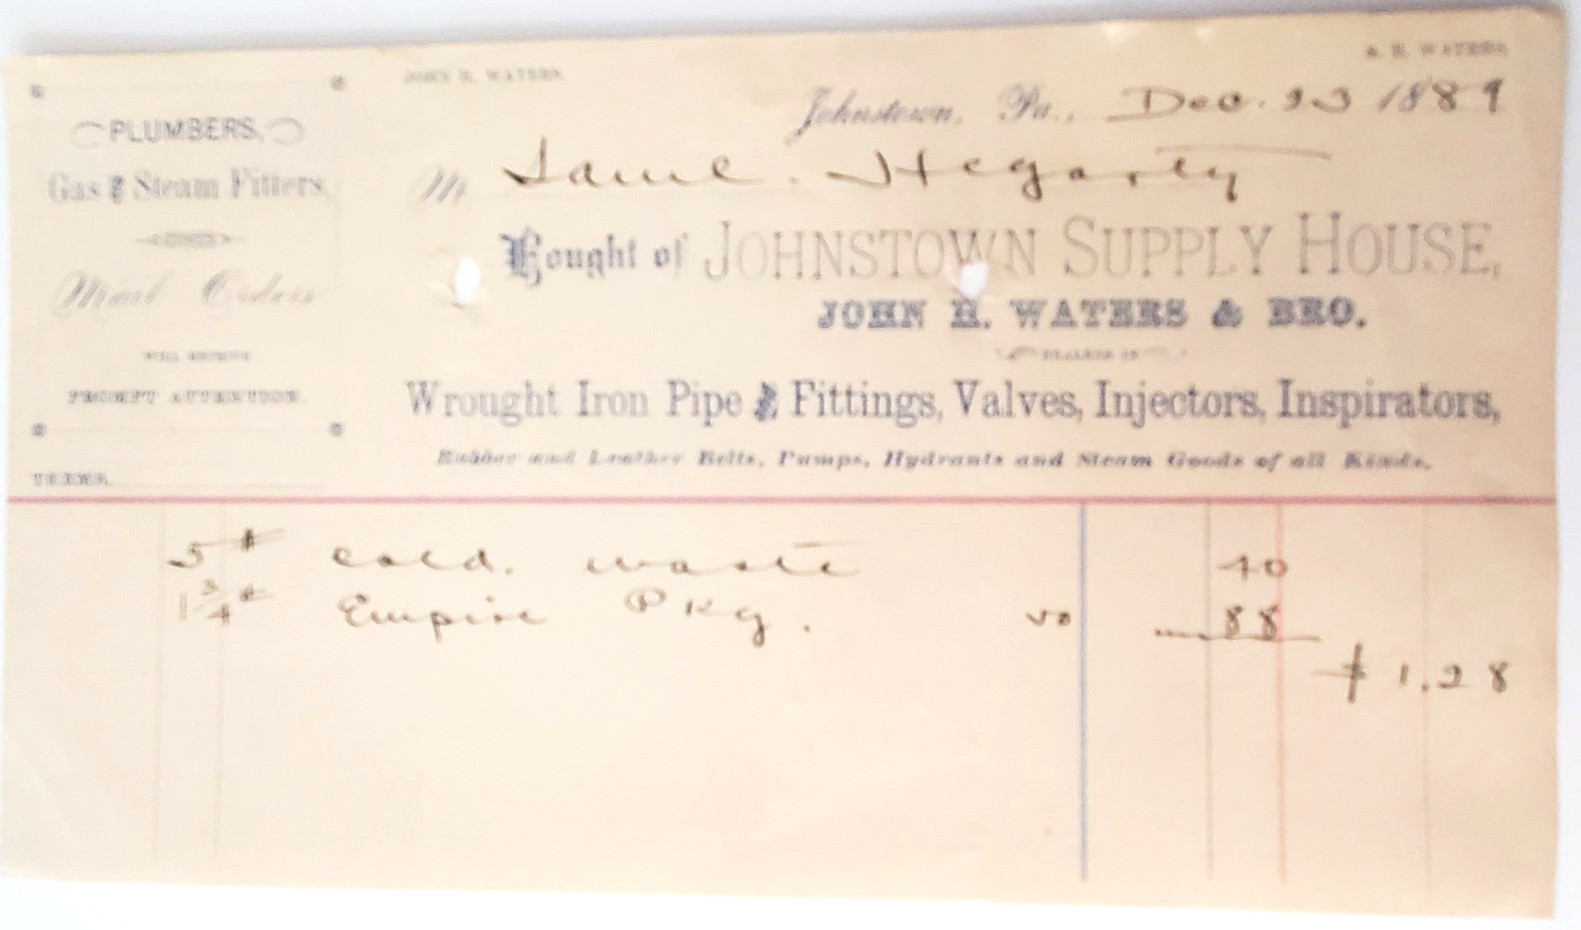 JOHN H. WATERS.
S. H. WATERS.
Johnstown, Pa., Dec. 23 1889
M Saml. Hegarty
Bought of JOHNSTOWN SUPPLY HOUSE,
JOHN H. WATERS & BRO.
DEALERS IN
Wrought Iron Pipe & Fittings, Valves, Injectors, Inspirators,
Rubber and Leather Belts, Pumps, Hydrants and Steam Goods of all Kinds.
PLUMBERS,
Gas & Steam Fitters,
Mail Orders
WILL RECEIVE
PROMPT ATTENTION.
TERMS,
5# cold. waste 40
1 3/4# Empire Pkg. 50 88
$1.28